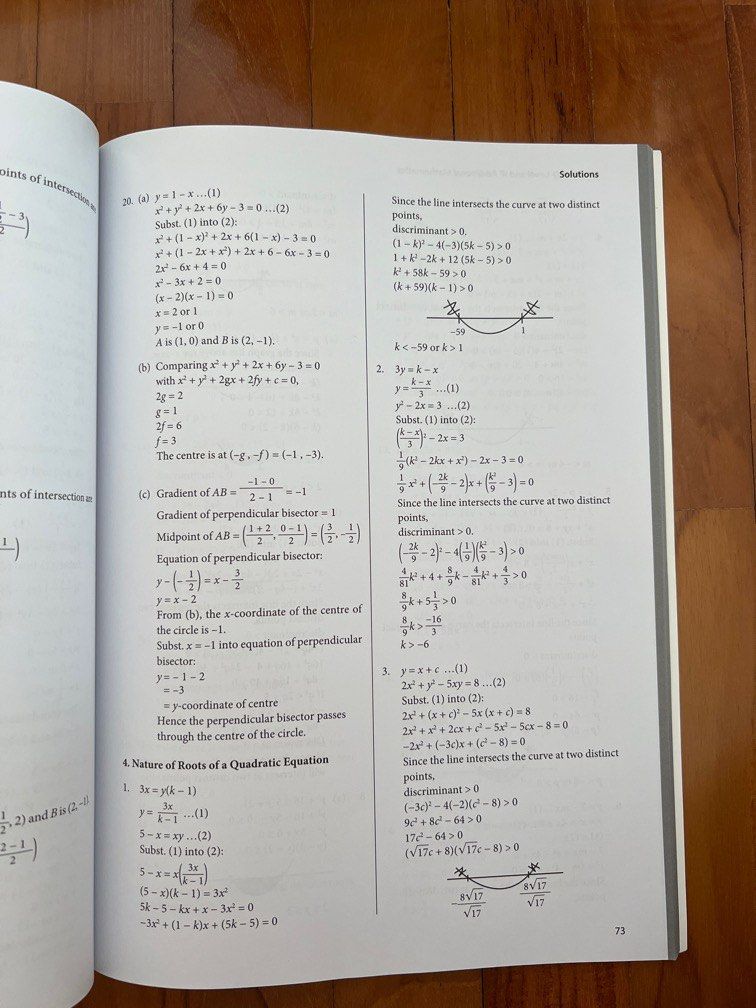 oints of intersection
Solutions
20. (a) y = 1 – x …(1)
x² + y² + 2x + 6y – 3 = 0 …(2)
Subst. (1) into (2):
x² + (1 – x)² + 2x + 6(1 – x) – 3 = 0
x² + (1 – 2x + x²) + 2x + 6 – 6x – 3 = 0
2x² – 6x + 4 = 0
x² – 3x + 2 = 0
(x – 2)(x – 1) = 0
x = 2 or 1
y = –1 or 0
A is (1, 0) and B is (2, –1).
(b) Comparing x² + y² + 2x + 6y – 3 = 0
with x² + y² + 2gx + 2fy + c = 0,
2g = 2
g = 1
2f = 6
f = 3
The centre is at (–g , –f) = (–1 , –3).
nts of intersection are
(c) Gradient of AB = (–1 – 0)/(2 – 1) = –1
Gradient of perpendicular bisector = 1
Midpoint of AB = ((1 + 2)/2, (0 – 1)/2) = (3/2, –1/2)
Equation of perpendicular bisector:
y – (–1/2) = x – 3/2
y = x – 2
From (b), the x-coordinate of the centre of
the circle is –1.
Subst. x = –1 into equation of perpendicular
bisector:
y = – 1 – 2
= –3
= y-coordinate of centre
Hence the perpendicular bisector passes
through the centre of the circle.
4. Nature of Roots of a Quadratic Equation
1. 3x = y(k – 1)
y = 3x/(k – 1) …(1)
5 – x = xy …(2)
Subst. (1) into (2):
5 – x = x(3x/(k – 1))
(5 – x)(k – 1) = 3x²
5k – 5 – kx + x – 3x² = 0
–3x² + (1 – k)x + (5k – 5) = 0
, 2) and B is (2, –1)
Since the line intersects the curve at two distinct
points,
discriminant > 0.
(1 – k)² – 4(–3)(5k – 5) > 0
1 + k² –2k + 12 (5k – 5) > 0
k² + 58k – 59 > 0
(k + 59)(k – 1) > 0
–59 1
k < –59 or k > 1
2. 3y = k – x
y = (k – x)/3 …(1)
y² – 2x = 3 …(2)
Subst. (1) into (2):
((k – x)/3)² – 2x = 3
1/9(k² – 2kx + x²) – 2x – 3 = 0
1/9 x² + (–2k/9 – 2)x + (k²/9 – 3) = 0
Since the line intersects the curve at two distinct
points,
discriminant > 0.
(–2k/9 – 2)² – 4(1/9)(k²/9 – 3) > 0
4/81 k² + 4 + 8/9 k – 4/81 k² + 4/3 > 0
8/9 k + 5 1/3 > 0
8/9 k > –16/3
k > –6
3. y = x + c …(1)
2x² + y² – 5xy = 8 …(2)
Subst. (1) into (2):
2x² + (x + c)² – 5x (x + c) = 8
2x² + x² + 2cx + c² – 5x² – 5cx – 8 = 0
–2x² + (–3c)x + (c² – 8) = 0
Since the line intersects the curve at two distinct
points,
discriminant > 0
(–3c)² – 4(–2)(c² – 8) > 0
9c² + 8c² – 64 > 0
17c² – 64 > 0
(√17c + 8)(√17c – 8) > 0
–8√17/√17 8√17/√17
73